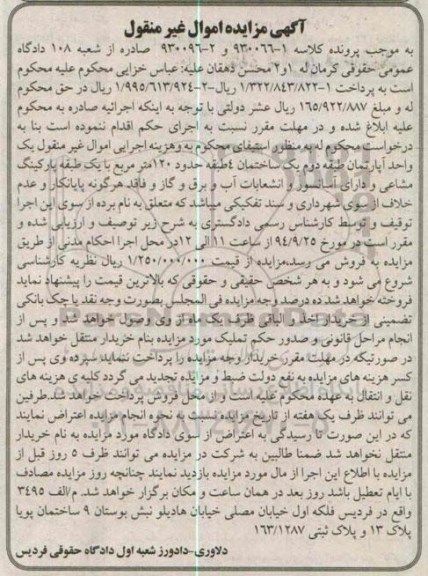 آگهی مزایده اموال غیر منقول
به موجب پرونده کلاسه ۱-۹۳۰۰۶۶ و ۲-۹۳۰۰۹۶ صادره از شعبه ۱۰۸ دادگاه
عمومی حقوقی کرمان له ۱و۲ محسن دهقان علیه: عباس خزایی محکوم علیه محکوم
است به پرداخت ۱-۱/۳۲۲/۸۴۳/۸۲۲ ریال-۲-۱/۹۹۵/۶۱۳/۹۲۴ ریال در حق محکوم
له و مبلغ ۱۶۵/۹۲۲/۸۸۷ ریال عشر دولتی با توجه به اینکه اجرائیه صادره به محکوم
علیه ابلاغ شده و در مهلت مقرر نسبت به اجرای حکم اقدام ننموده است بنا به
درخواست محکوم له به منظور استیفای محکوم به وهزینه اجرایی اموال غیر منقول یک
واحد آپارتمان طبقه دوم یک ساختمان ٤طبقه حدود ۱۲۰متر مربع با یک طبقه پارکینگ
مشاعی و دارای آسانسور و انشعابات آب و برق و گاز و فاقد هرگونه پایانکار و عدم
خلاف از سوی شهرداری و سند تفکیکی میباشد که متعلق به نام برده از سوی این اجرا
توقیف و توسط کارشناس رسمی دادگستری به شرح زیر توصیف و ارزیابی شده و
مقرر است در مورخ ۹۴/۹/۲۵ از ساعت ۱۱ الی ۱۲در محل اجرا احکام مدنی از طریق
مزایده به فروش می رسد،مزایده از قیمت ۱/۲۵۰/۰۰۰/۰۰۰ ریال نظریه کارشناسی
شروع می شود و به هر شخص حقیقی و حقوقی که بالاترین قیمت را پیشنهاد نماید
فروخته خواهد شد ده درصد وجه مزایده فی المجلس بصورت وجه نقد یا چک بانکی
تضمینی از خریدار اخذ و الباقی ظرف یک ماه از وی وصول خواهد شد و پس از
انجام مراحل قانونی و صدور حکم تملیک مورد مزایده بنام خریدار منتقل خواهد شد
در صورتیکه در مهلت مقرر خریدار وجه مزایده را پرداخت ننماید سپرده وی پس از
کسر هزینه های مزایده به نفع دولت ضبط و مزایده تجدید می گردد کلیه ی هزینه های
نقل و انتقال به عهده محکوم علیه است و از محل فروش پرداخت خواهد شد.طرفین
می توانند ظرف یک هفته از تاریخ مزایده نسبت به نحوه انجام مزایده اعتراض نمایند
که در این صورت تا رسیدگی به اعتراض از سوی دادگاه مورد مزایده به نام خریدار
منتقل نخواهد شد ضمنا طالبین به شرکت در مزایده می توانند ظرف ۵ روز قبل از
مزایده با اطلاع این اجرا از مال مورد مزایده بازدید نمایند چنانچه روز مزایده مصادف
با ایام تعطیل باشد روز بعد در همان ساعت و مکان برگزار خواهد شد. م/الف ۳۴۹۵
واقع در فردیس فلکه اول خیابان مصلی خیابان هادیلو نبش بوستان ۹ ساختمان پویا
پلاک ۱۳ و پلاک ثبتی ۱۶۳/۱۲۸۷
دلاوری-دادورز شعبه اول دادگاه حقوقی فردیس